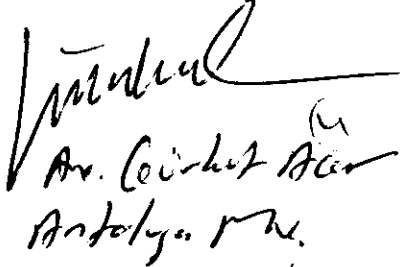 Av. Gürkut Acar
Antalya Mv.